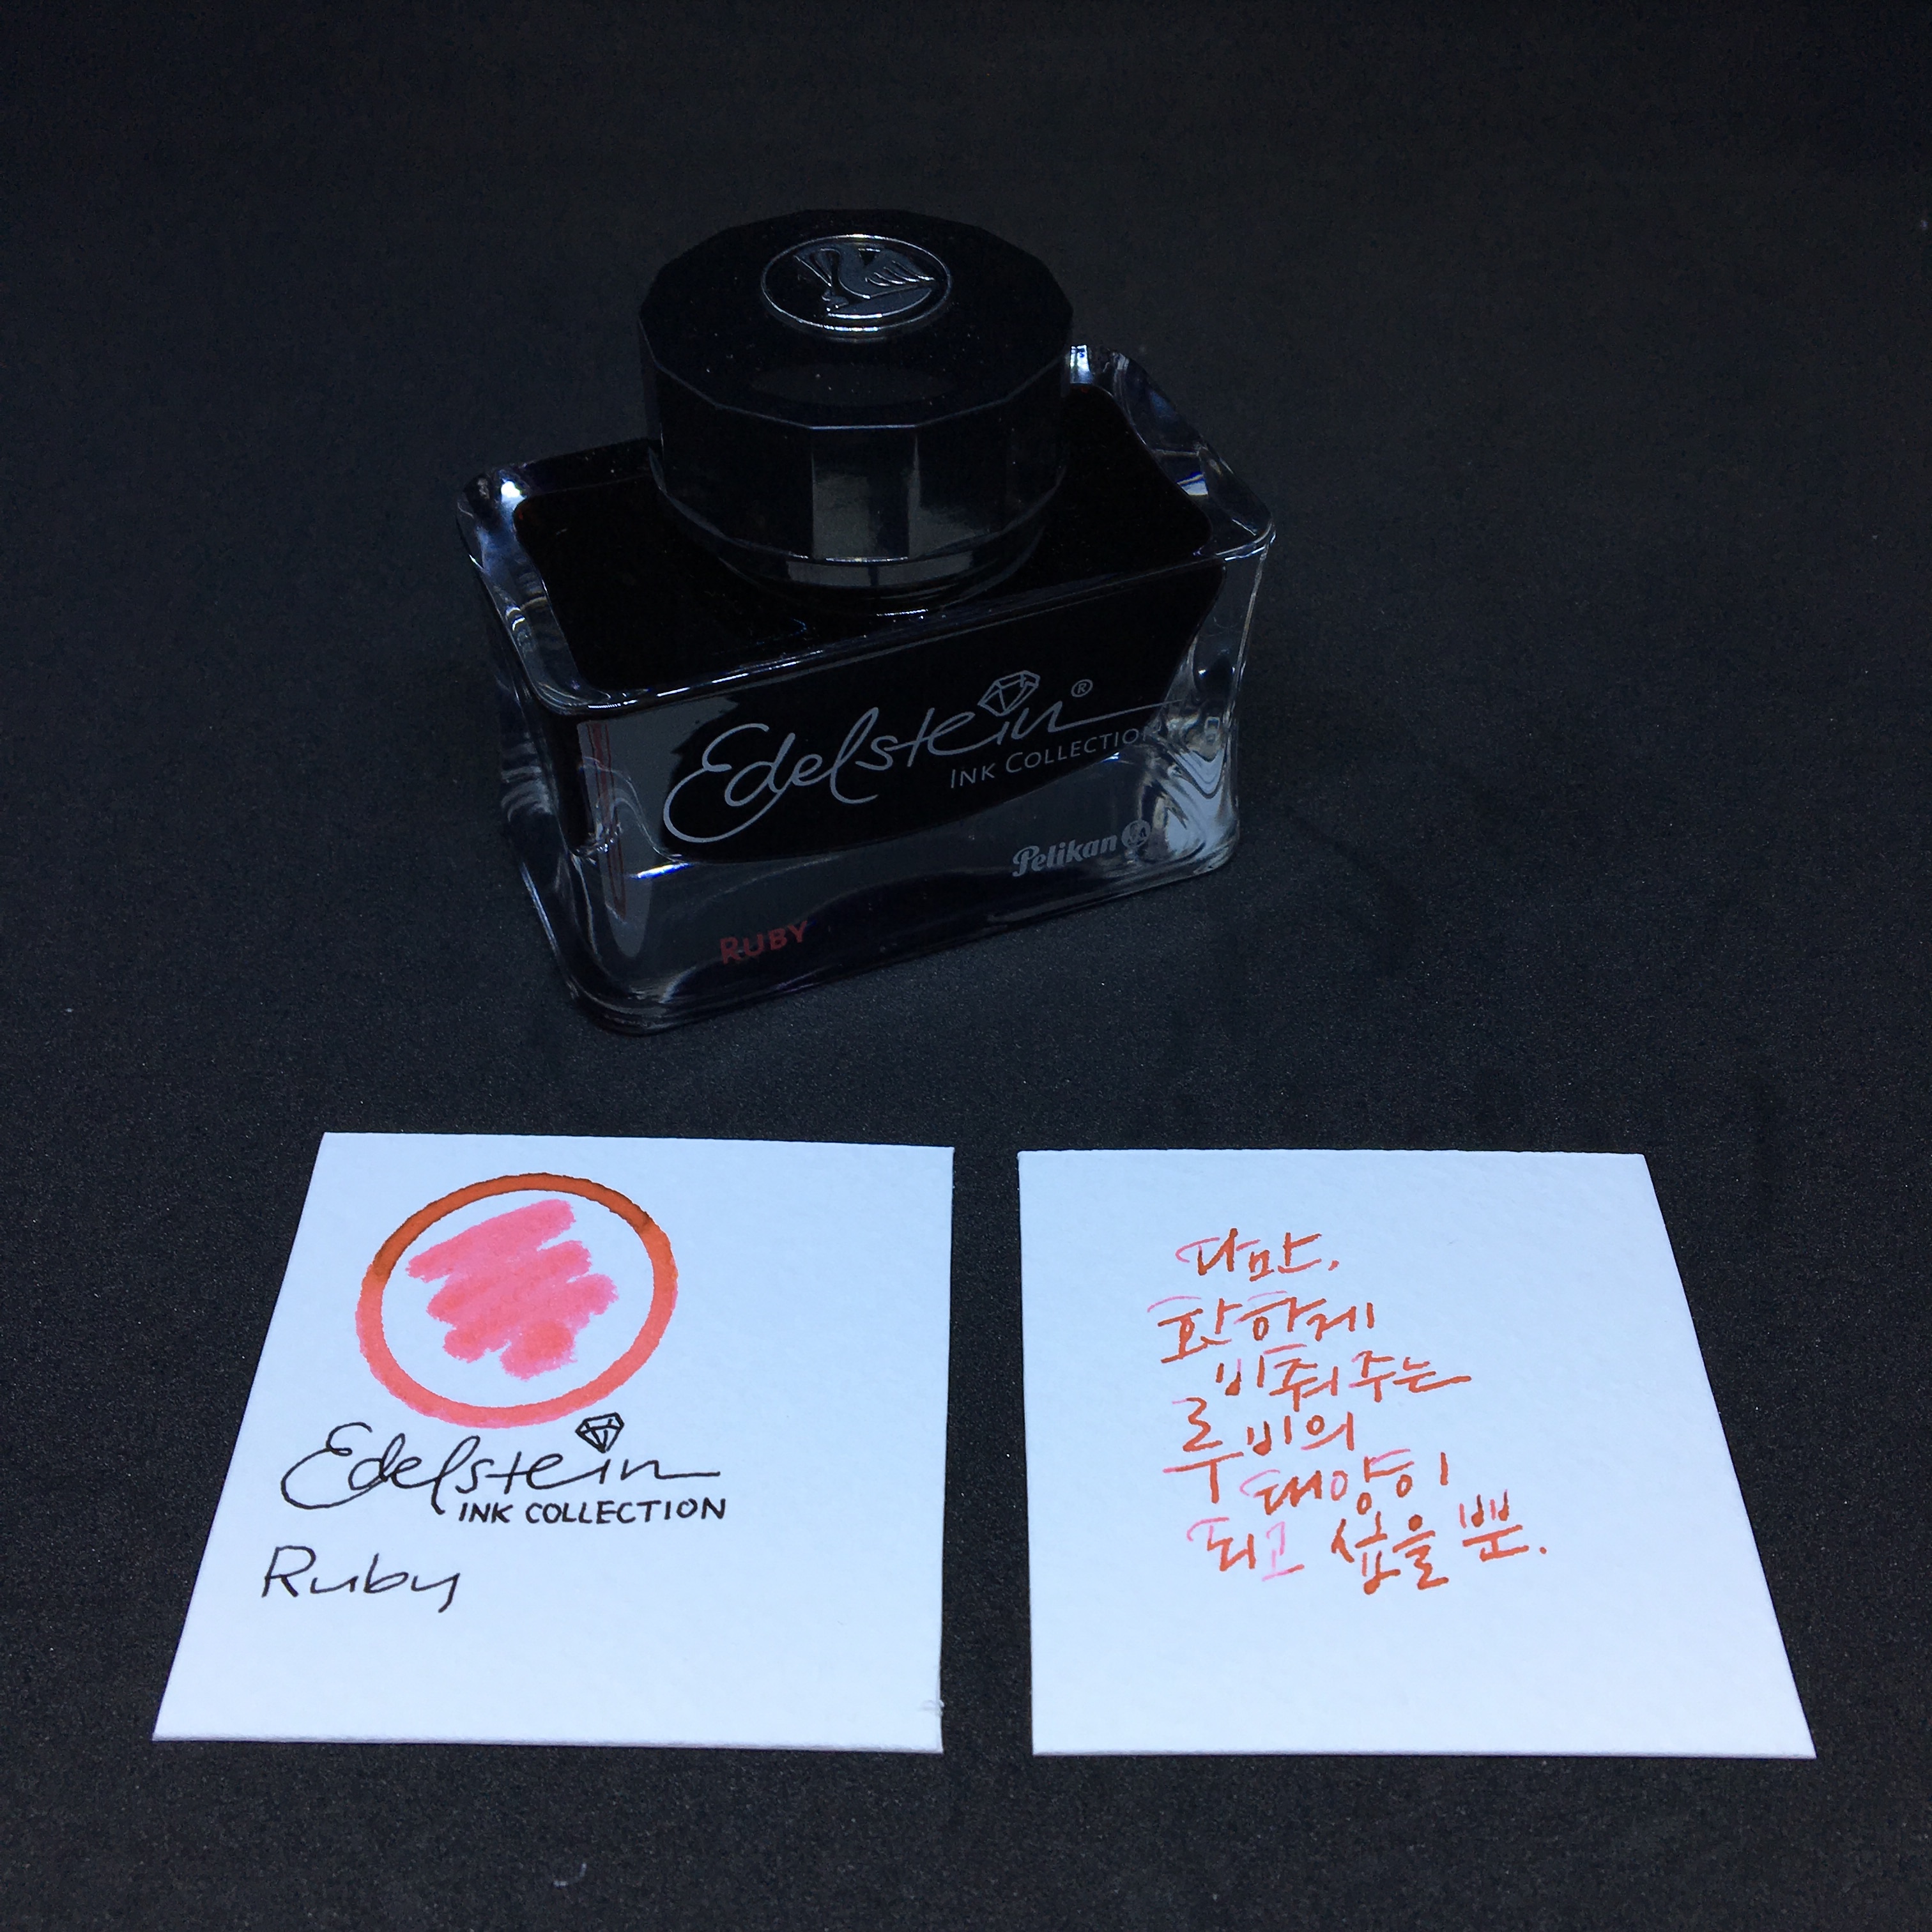 Edelstein®
INK COLLECTION
Pelikan
RUBY
Edelstein
INK COLLECTION
Ruby
다만,
환하게
비춰주는
루비의
태양이
되고 싶을 뿐.